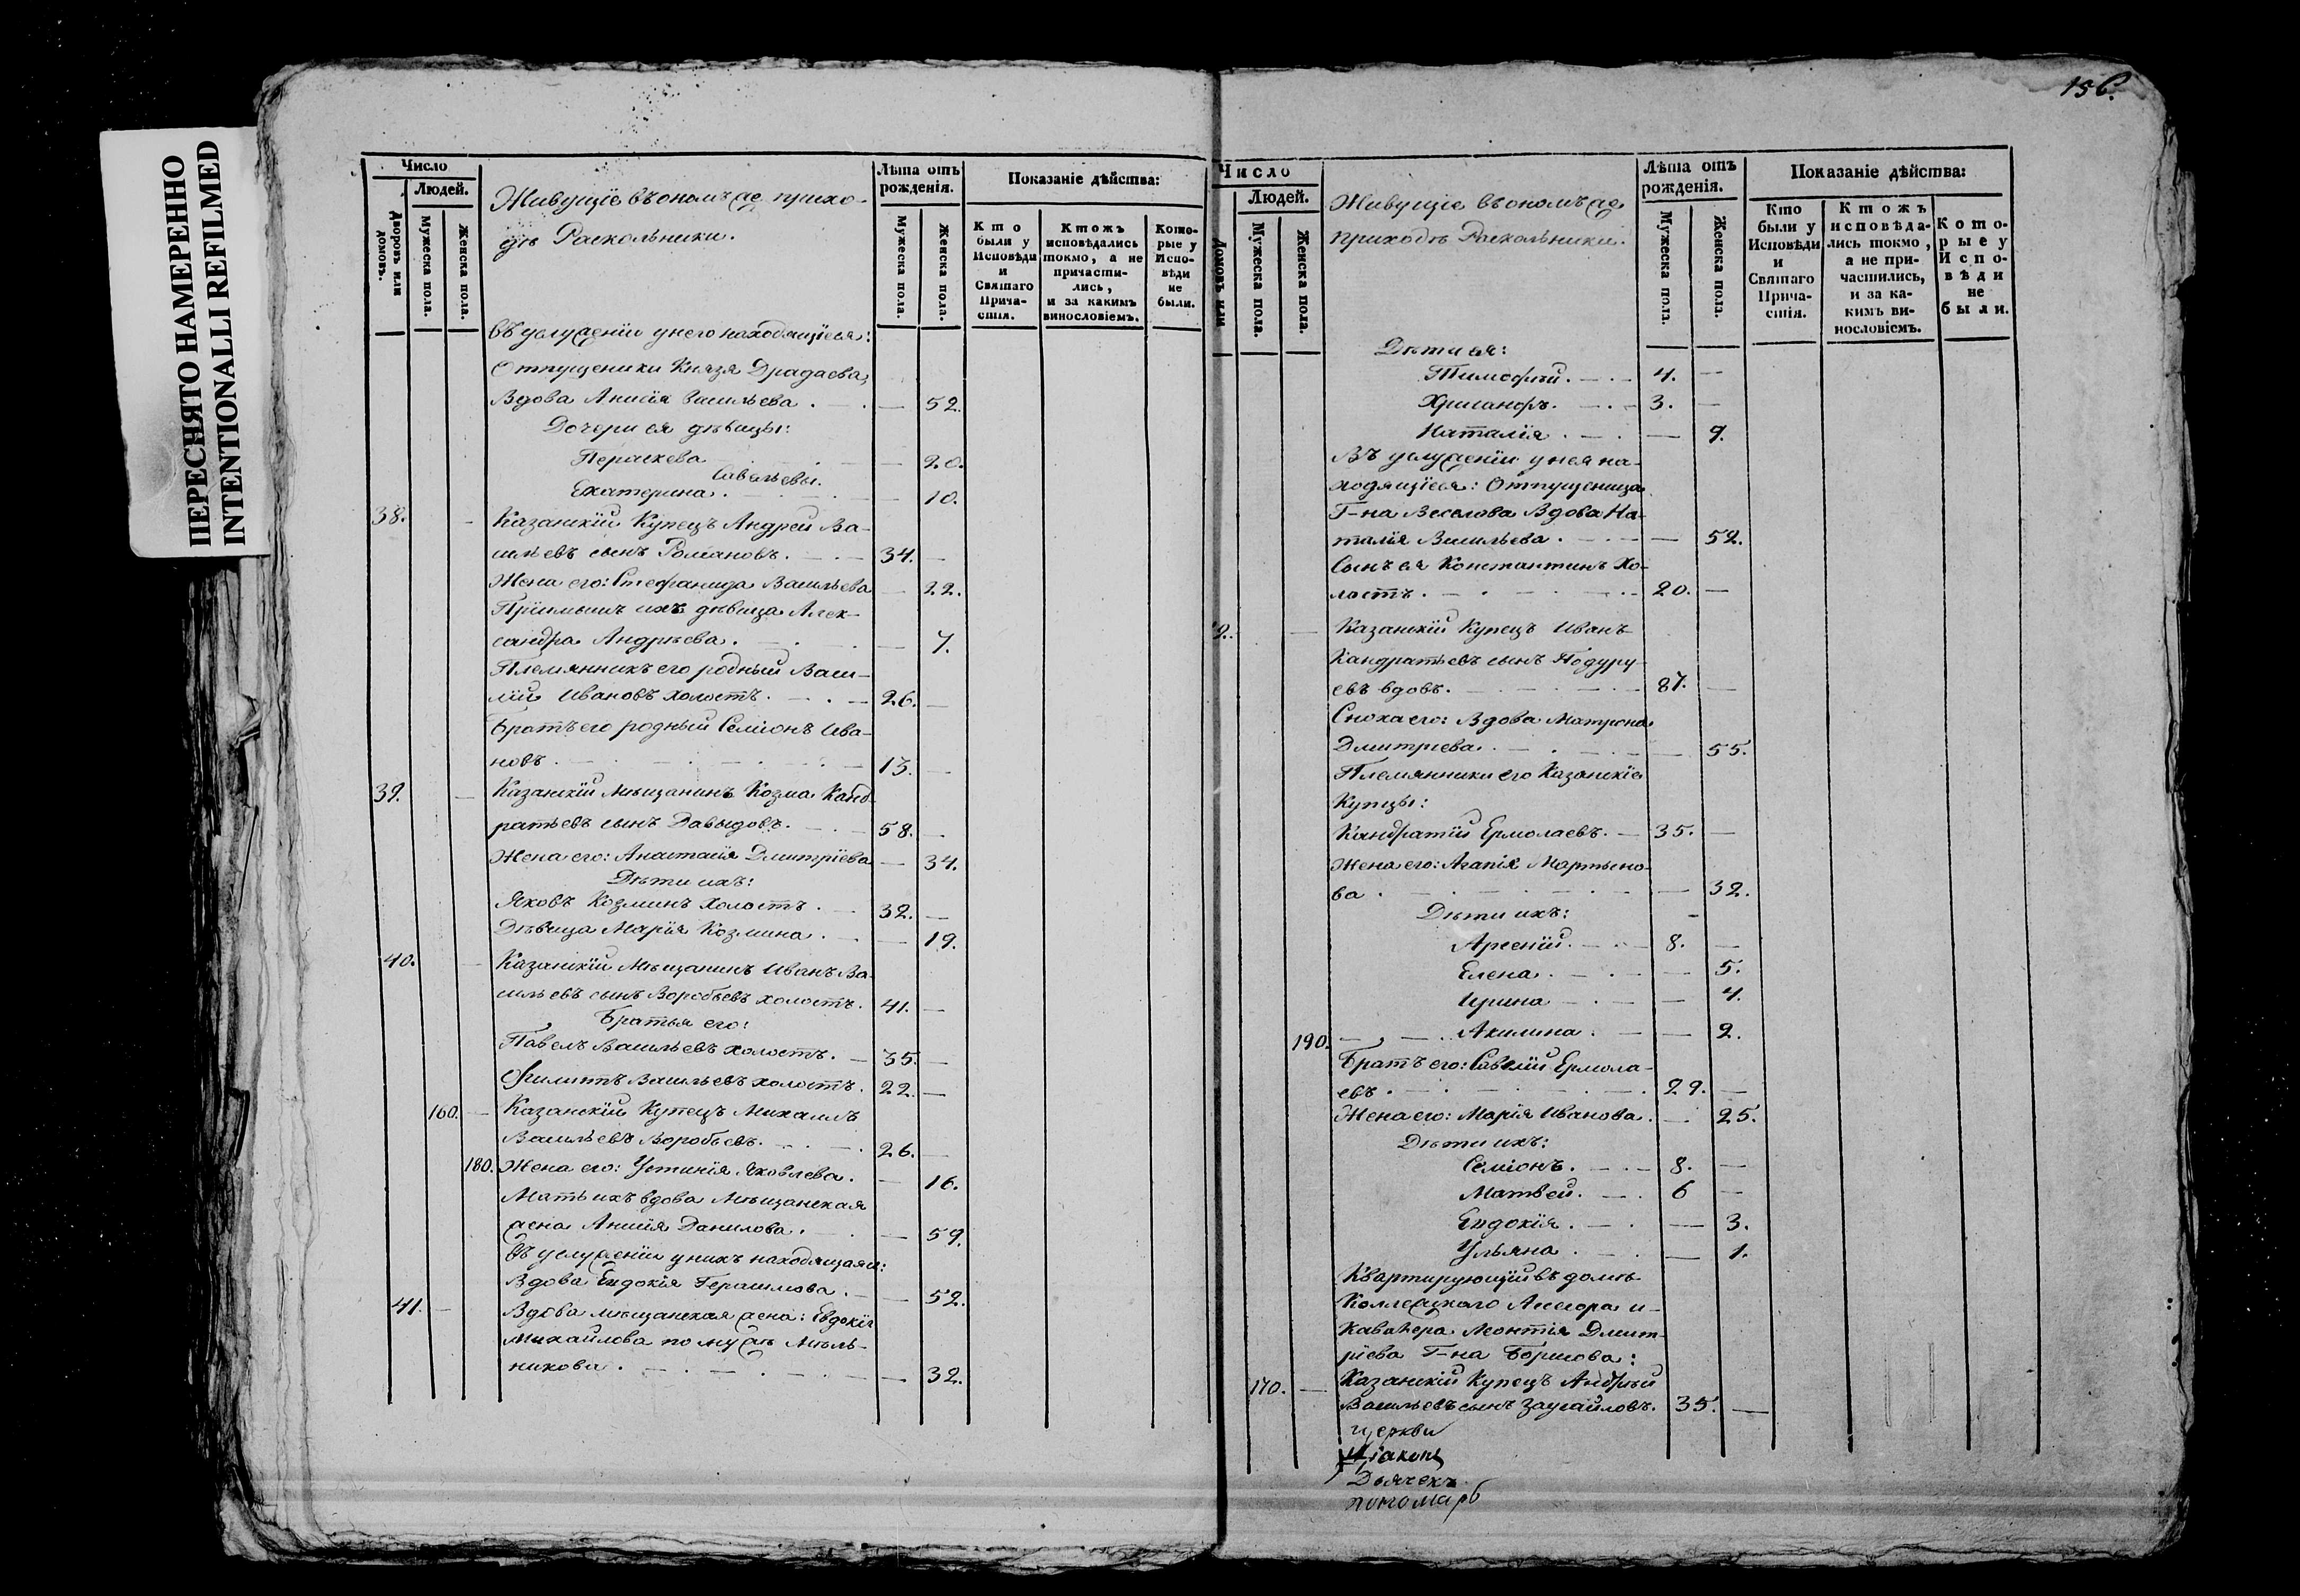 ПЕРЕСНЯТО НАМЕРЕННО
INTENTIONALLI REFILMED
Число
Людей.
Дворовъ или домовъ.
Мужеска пола.
Женска пола.
Живущіе въ ономъ же прихо-
дѣ Раскольники.
Лѣта отъ рожденія.
Мужеска пола.
Женска пола.
Показаніе дѣйства:
Кто были у Исповѣди и Святаго Прича-стія.
Ктожъ исповѣдались токмо, а не причасти-лись, и за какимъ винословіемъ.
Кото-рые у Испо-вѣди не были.
въ услуженіи у него находящіеся:
Отпущеники Князя
Вдова Анисія Васильева . — 52.
Дочери ея дѣвицы:
Параскева — 20.
Савельевы.
Екатерина . — 10.
38. Казанскій Купецъ Андрей Ва-
сильевъ сынъ Романовъ. 34. —
Жена его: Стефанида Васильева — 22.
Пріимышъ ихъ дѣвица Алек-
сандра Андрѣева. — 7.
Племянникъ его родный Васи-
лій Ивановъ холостъ. 26. —
Братъ его родный Семіонъ Ива-
новъ. 13. —
39. Казанскій Мѣщанинъ Козма Канд-
ратьевъ сынъ Давыдовъ. 58. —
Жена его: Анастасія Дмитріева — 34.
Дѣти ихъ:
Яковъ Козминъ холостъ. 32. —
Дѣвица Марія Козмина. — 19.
40. Казанскій Мѣщанинъ Иванъ Ва-
сильевъ сынъ Воробьевъ холостъ. 41. —
Братья его:
Павелъ Васильевъ холостъ. 35. —
Филиппъ Васильевъ холостъ. 22. —
160. — Казанскій Купецъ Михаилъ
Васильевъ Воробьевъ. 26. —
180. Жена его: Устинія Яковлева. — 16.
Мать ихъ вдова Мѣщанская
жена Анисія Данилова. — 59.
Въ услуженіи у нихъ находящаяся:
Вдова Евдокія Герасимова. — 52.
41. — Вдова мѣщанская жена: Евдокія
Михайлова по мужѣ Мѣль-
никова. — 32.
156.
Число
Людей.
Домовъ или
Мужеска пола.
Женска пола.
Живущіе въ ономъ же
приходѣ Раскольники.
Лѣта отъ рожденія.
Мужеска пола.
Женска пола.
Показаніе дѣйства:
Кто были у Исповѣди и Святаго Прича-стія.
Ктожъ исповѣда-лись токмо, а не при-частились, и за ка-кимъ ви-нословіемъ.
Кото-рые у Испо-вѣди не были.
Дѣти ея:
Тимофѣй. 4. —
Хрисанфъ. 3. —
Наталія . — 9.
Въ услуженіи у нея на-
ходящіеся: Отпущеница
Г-на Веселова Вдова На-
талія Васильева. — 52.
Сынъ ея Константинъ Хо-
лостъ. 20. —
2. — Казанскій Купецъ Иванъ
Кандратьевъ сынъ Подуру-
евъ вдовъ. 87. —
Сноха его: Вдова Матрона
Дмитріева. — 55.
Племянники его Казанскіе
Купцы:
Кандратій Ермолаевъ. 35. —
Жена его: Агапія Мартыно-
ва. — 32.
Дѣти ихъ:
Арсеній. 8. —
Елена. — 5.
Ирина — 4.
190. Акилина. — 2.
Братъ его: Савелій Ермола-
евъ. 29. —
Жена его: Марія Иванова. — 25.
Дѣти ихъ:
Семіонъ. 8. —
Матвей. 6 —
Евдокія. — 3.
Ульяна. — 1.
Квартирующій въ домѣ
Коллежскаго Ассесора и
Кавалера Леонтія Дмит-
ріева Г-на Борисова:
170. — Казанскій Купецъ Андрѣй
Васильевъ сынъ Заусайловъ. 35. —
церкви
Діаконъ
Дьячекъ
пономарь